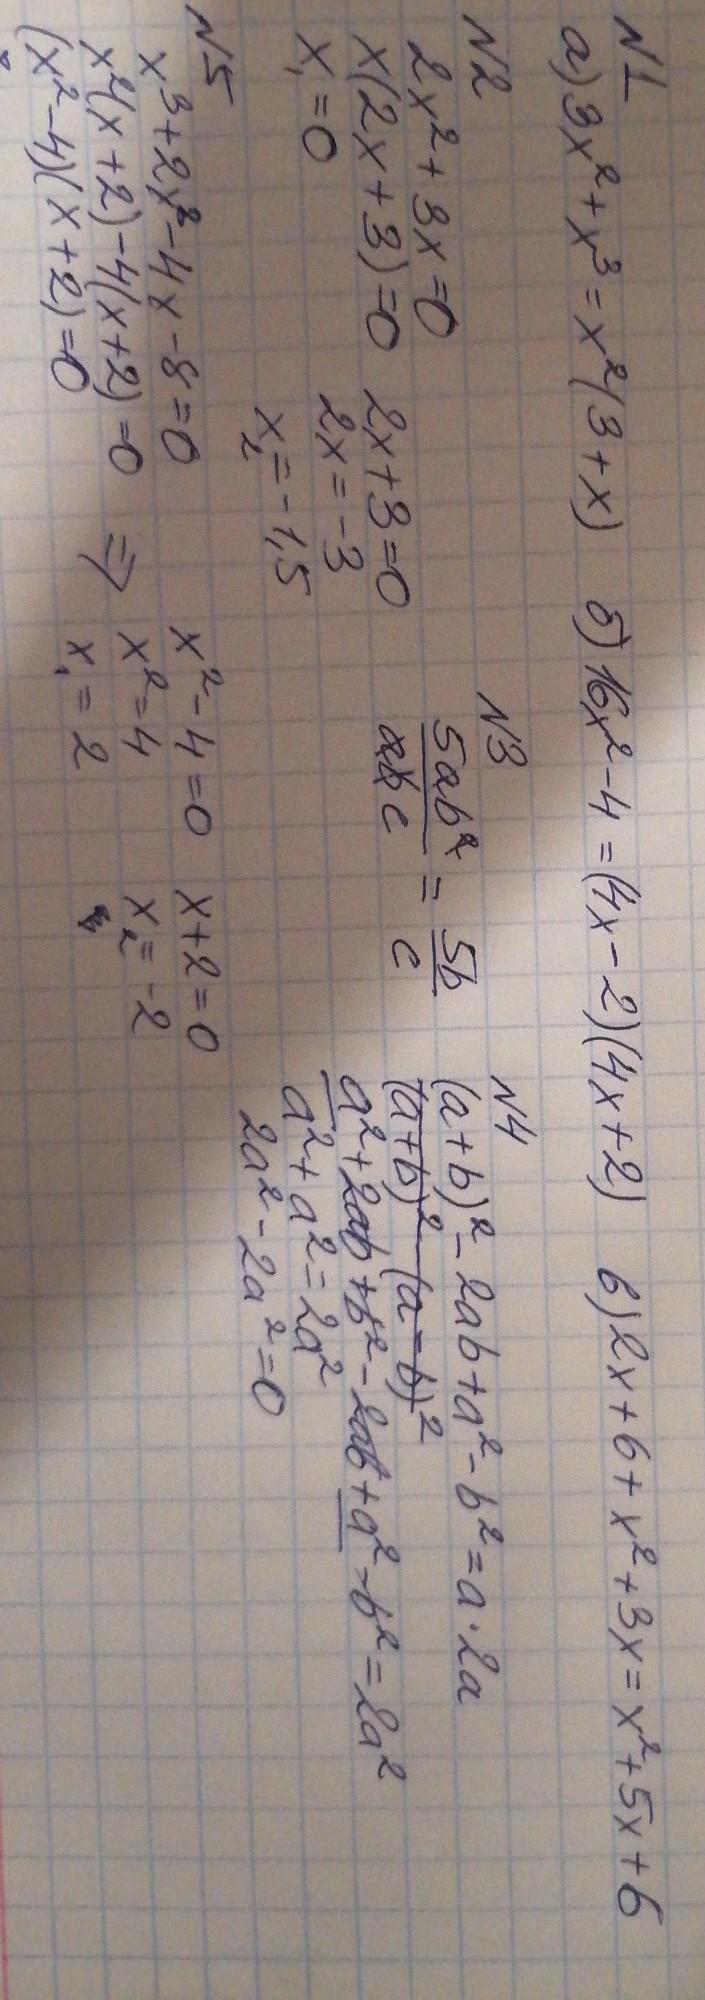 N1
а) 3x² + x³ = x²(3 + x) б) 16x² - 4 = (4x - 2)(4x + 2) в) 2x + 6 + x² + 3x = x² + 5x + 6
N2
2x² + 3x = 0
x(2x + 3) = 0
x₁ = 0
2x + 3 = 0
2x = -3
x₂ = -1,5
N3
5ab²/abc = 5b/c
N4
(a + b)² - 2ab + a² - b² = a · 2a
(a + b)² - (a - b)²
a² + 2ab + b² - 2ab + a² - b² = 2a²
a² + a² = 2a²
2a² - 2a² = 0
N5
x³ + 2x² - 4x - 8 = 0
x²(x + 2) - 4(x + 2) = 0 ⇒
(x² - 4)(x + 2) = 0
x² - 4 = 0
x² = 4
x₁ = 2
x + 2 = 0
x₂ = -2